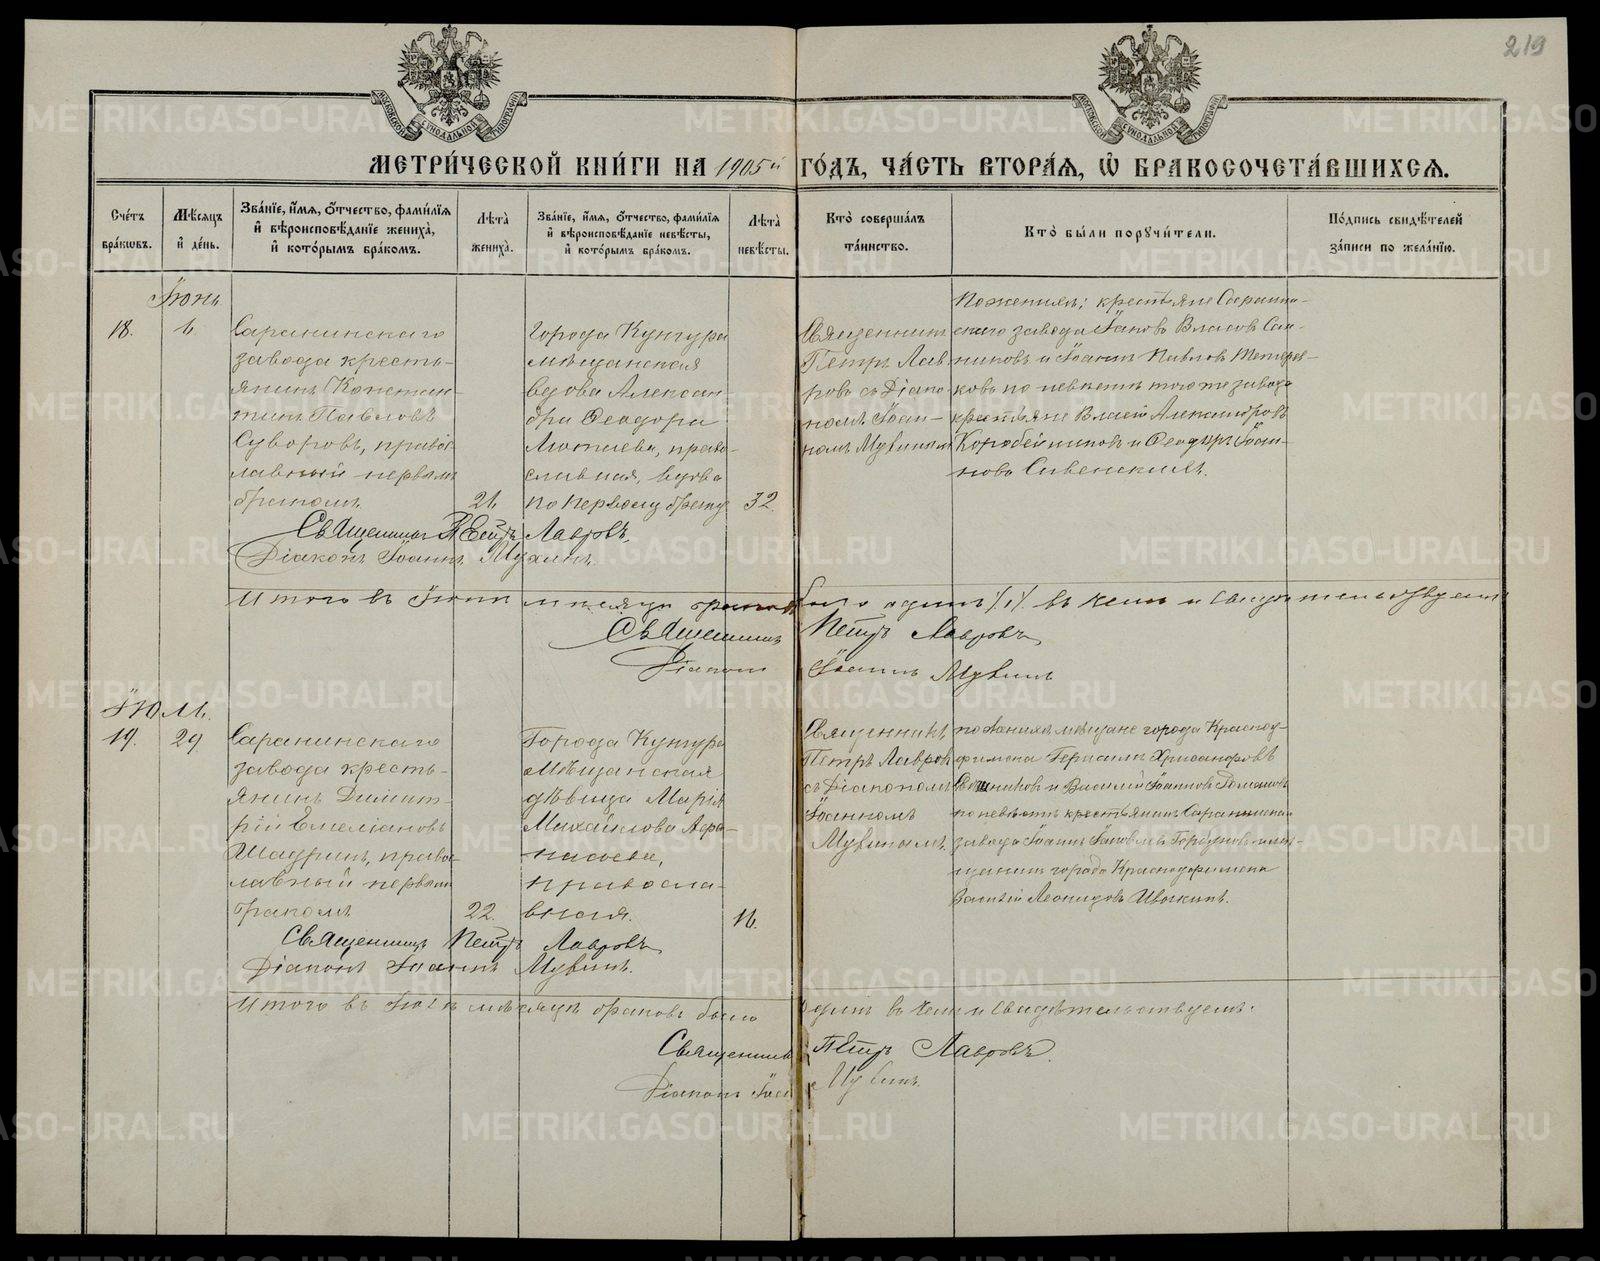 219
МОСКОВСКОЙ СѴНОДАЛЬНОЙ ТИПОГРАФІИ
МОСКОВСКОЙ СѴНОДАЛЬНОЙ ТИПОГРАФІИ
МЕТРИ́ЧЕСКОЙ КНИ́ГИ НА 1905й ГО́ДЪ, ЧА́СТЬ ВТОРА́Я, Ѡ҆ БРАКОСОЧЕТА́ВШИХСЯ.
Сче́тъ бра́ковъ.
Мѣ́сяцъ и҆ де́нь.
Зва́нїе, и҆́мя, ѻ҆́тчество, фами́лїя и҆ вѣроисповѣ́данїе жениха̀, и҆ кото́рымъ бра́комъ.
Лѣта̀ жениха̀.
Зва́нїе, и҆́мя, ѻ҆́тчество, фами́лїя и҆ вѣроисповѣ́данїе невѣ́сты, и҆ кото́рымъ бра́комъ.
Лѣта̀ невѣ́сты.
Кто̀ соверша́лъ та́инство.
Кто̀ бы́ли порꙋчи́тели.
По́дпись свидѣ́телей за́писи по жела́нїю.
Іюнь
18.
Саранинскаго
завода кресть-
янинъ Констан
тинъ Павловъ
Суворовъ, правос
лавный первымъ
бракомъ
21.
Города Кунгура
мѣщанская
вдова Алексан-
дра Ѳеодора
право-
славная, вдова
по первому браку
32.
Священникъ
Петръ Лав
ровъ съ Діако
номъ Іоан-
номъ Мухинымъ
По женихѣ: крестьяне Саранин-
скаго завода Іаковъ Власовъ
и Іоаннъ Павловъ
по невѣстѣ того же завода
крестьяне Власій Александровъ
Коробейниковъ и Ѳеодоръ Іоан-
новъ
Священникъ Петръ Лавровъ.
Діаконъ Іоаннъ Мухинъ.
Итого въ Іюнѣ мѣсяцѣ браковъ было одинъ /1/. въ чемъ и свидѣтельствуемъ
Священникъ Петръ Лавровъ
Діаконъ Іоаннъ Мухинъ
Іюль.
19.
29
Саранинскаго
завода кресть-
янинъ Димит-
рій Емеліановъ
Шадринъ, право-
лавный первымъ
бракомъ
22.
Города Кунгура
мѣщанская
дѣвица Марія
Михайлова Аѳа-
насьева,
правосла-
вная.
16.
Священникъ
Петръ Лавров
съ Діакономъ
Іоанномъ
Мухинымъ.
по женихѣ мѣщане города Красноу-
фимска Герасимъ Хрисанфовъ
и Василій Іоанновъ
по невѣстѣ крестьянинъ Саранинскаго
завода Іоаннъ Іаковлевъ Горбуновъ и мѣ-
щанинъ города Красноуфимска
Василій Леонидовъ
Священникъ Петръ Лавровъ
Діаконъ Іоаннъ Мухинъ.
Итого въ Іюлѣ мѣсяцѣ браковъ было одинъ въ чемъ и свидѣтельствуемъ:
Священникъ Петръ Лавровъ.
Діаконъ Іоаннъ Мухинъ.
METRIKI.GASO-URAL.RU